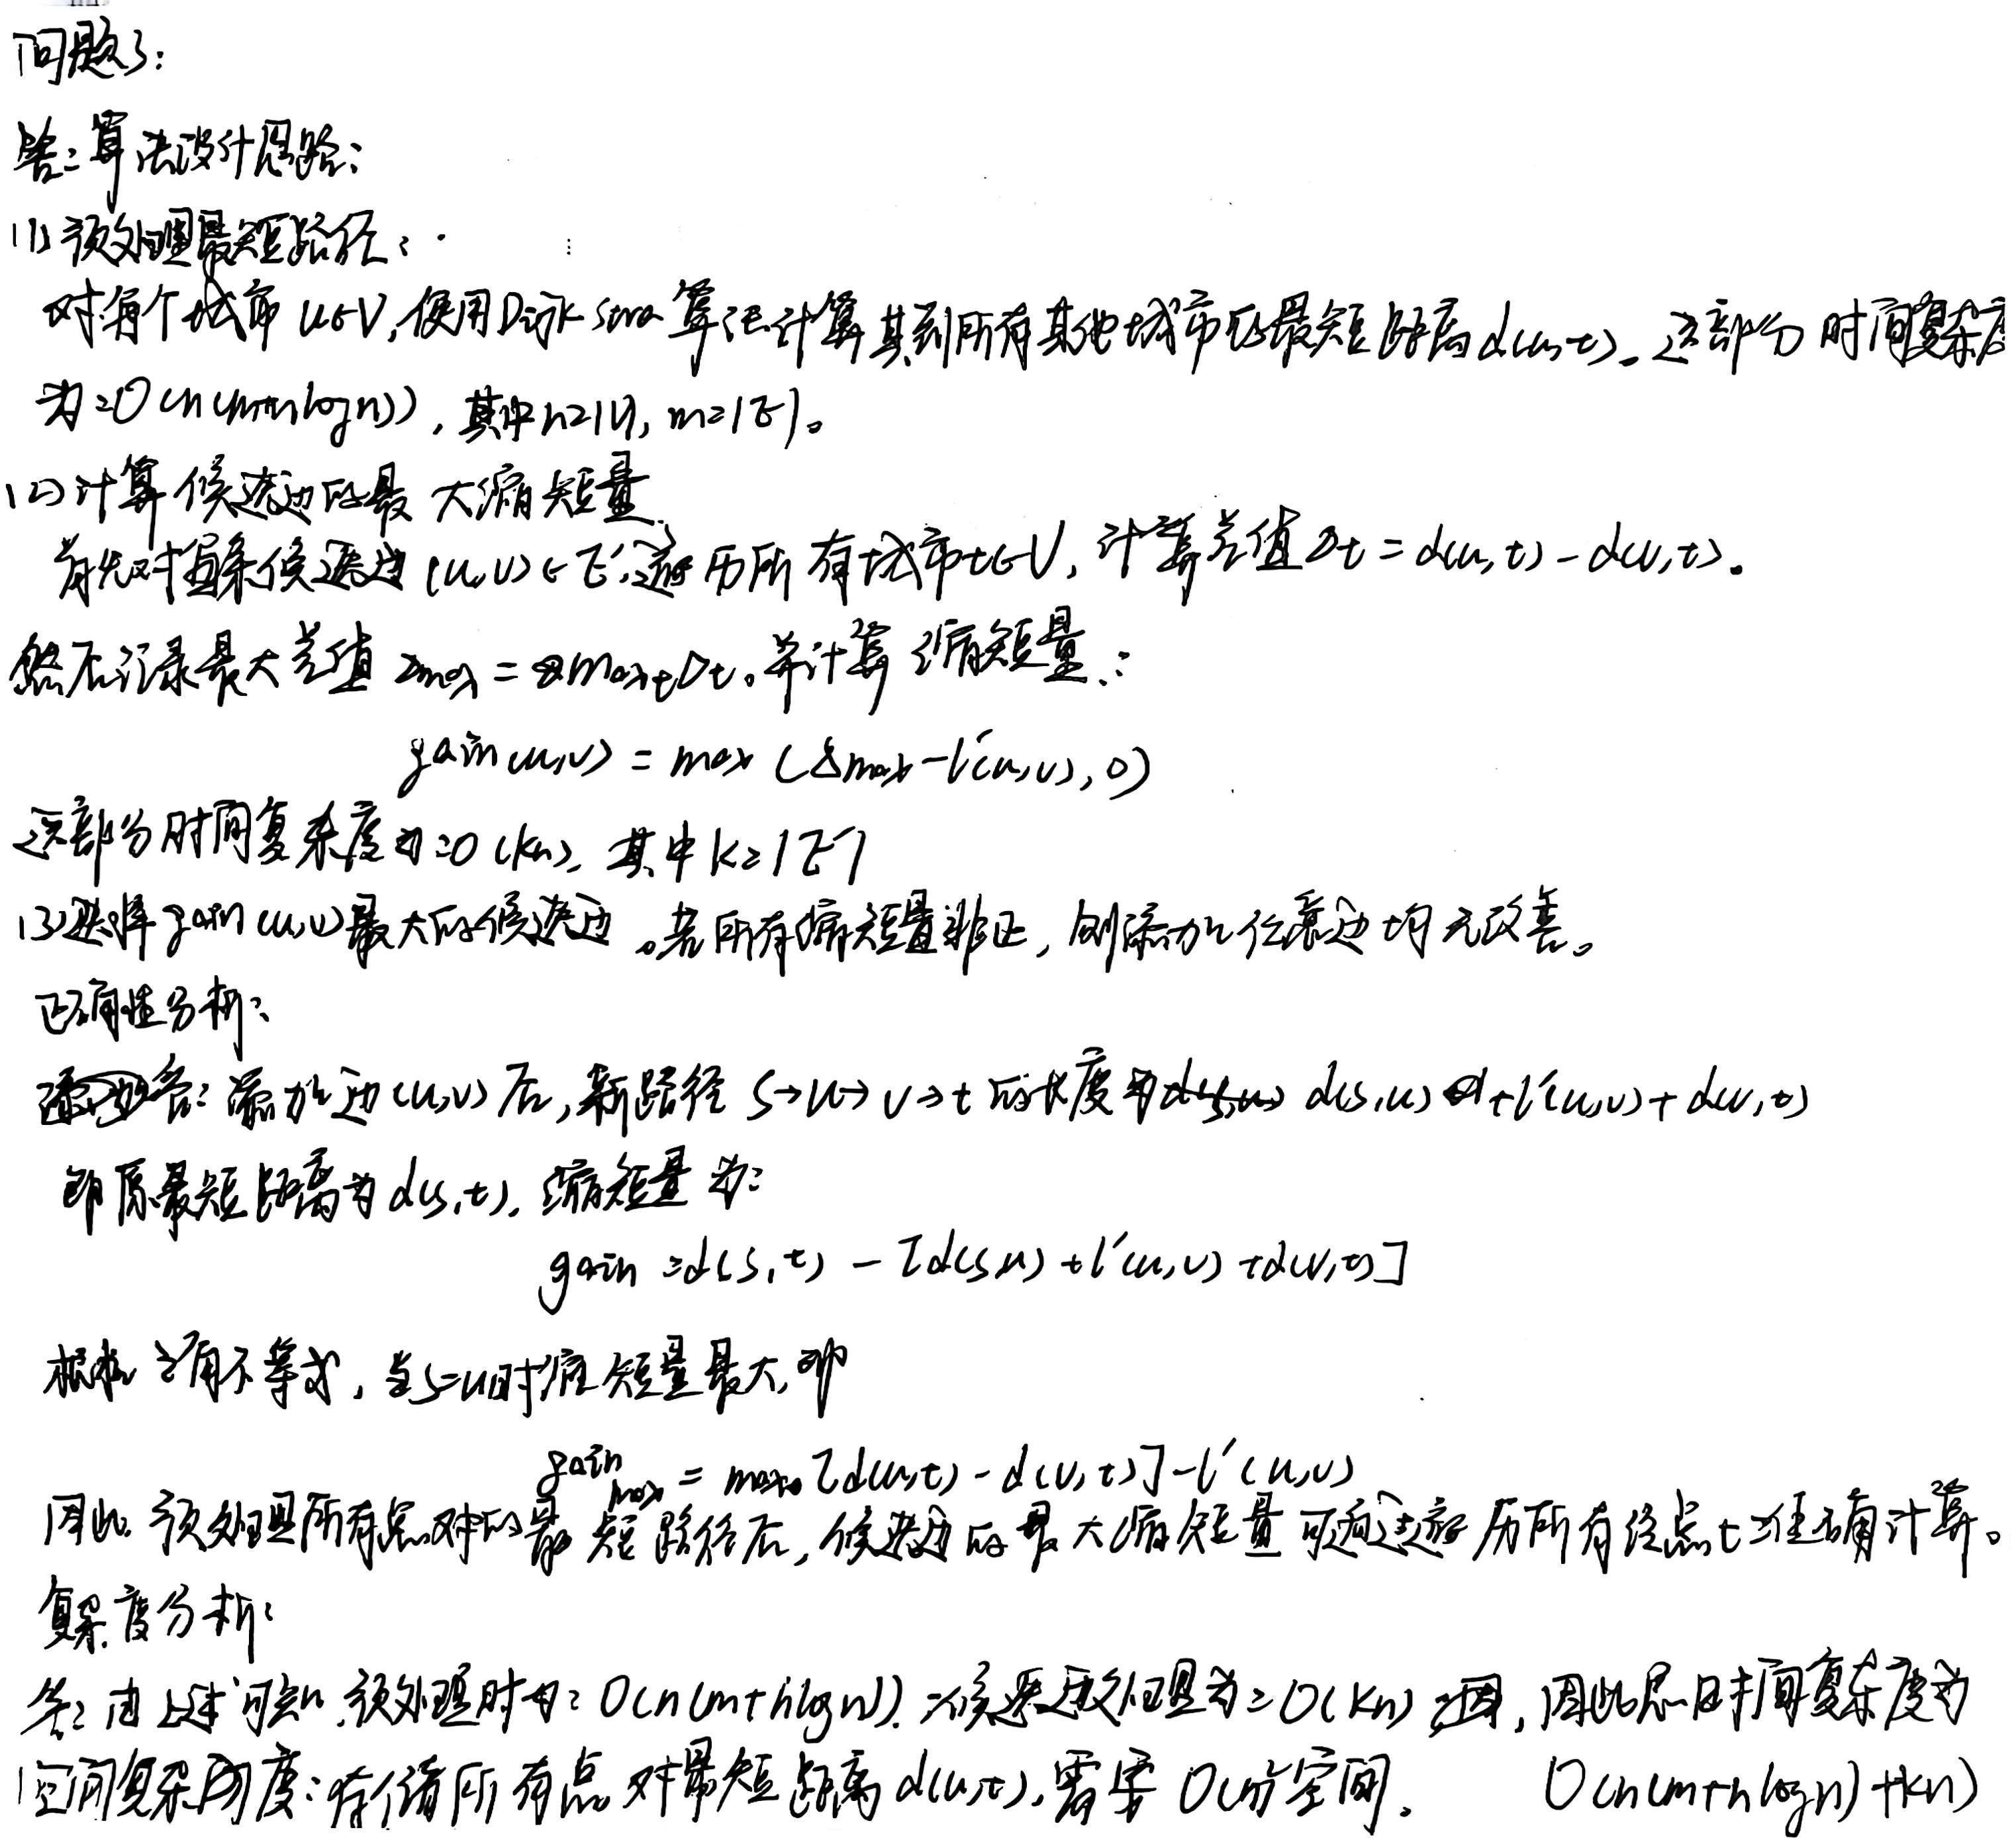 问题3:
答:算法设计思路:
(1)预处理最短路径:
对每个城市 u∈V,使用Dijkstra算法计算其到所有其他城市的最短距离d(u,t)。这部分时间复杂度
为:O(n(m+nlogn)),其中n=|V|, m=|E|。
(2)计算候选边的最大缩短量.
首先对每条候选边(u,v)∈E',遍历所有城市t∈V,计算差值Δt = d(u,t)-d(v,t)。
然后记录最大差值Δmax = maxtΔt。并计算缩短量:
gain(u,v) = max (Δmax-l'(u,v),0)
这部分时间复杂度为:O(kn),其中k=|E'|
(3)选择gain(u,v)最大的候选边。若所有缩短量非正,则添加任意边均无改善。
正确性分析:
答:添加边(u,v)后,新路径 s→u→v→t的长度为 d(s,u)+l'(u,v)+d(v,t)
即原最短距离为d(s,t),缩短量为:
gain=d(s,t) - [d(s,u)+l'(u,v)+d(v,t)]
根据三角不等式,当s=u时缩短量最大,即
gainmax = max [d(u,t)-d(v,t)]-l'(u,v)
因此预处理所有点对的最短路径后,候选边的最大缩短量可通过遍历所有终点t准确计算。
复杂度分析:
答:由上述可知,预处理时为:O(n(m+nlogn)).候选边处理为:O(kn),因此总时间复杂度为
O(n(m+nlogn)+kn)
空间复杂度:存储所有点对最短距离d(u,t),需要O(n²)空间.